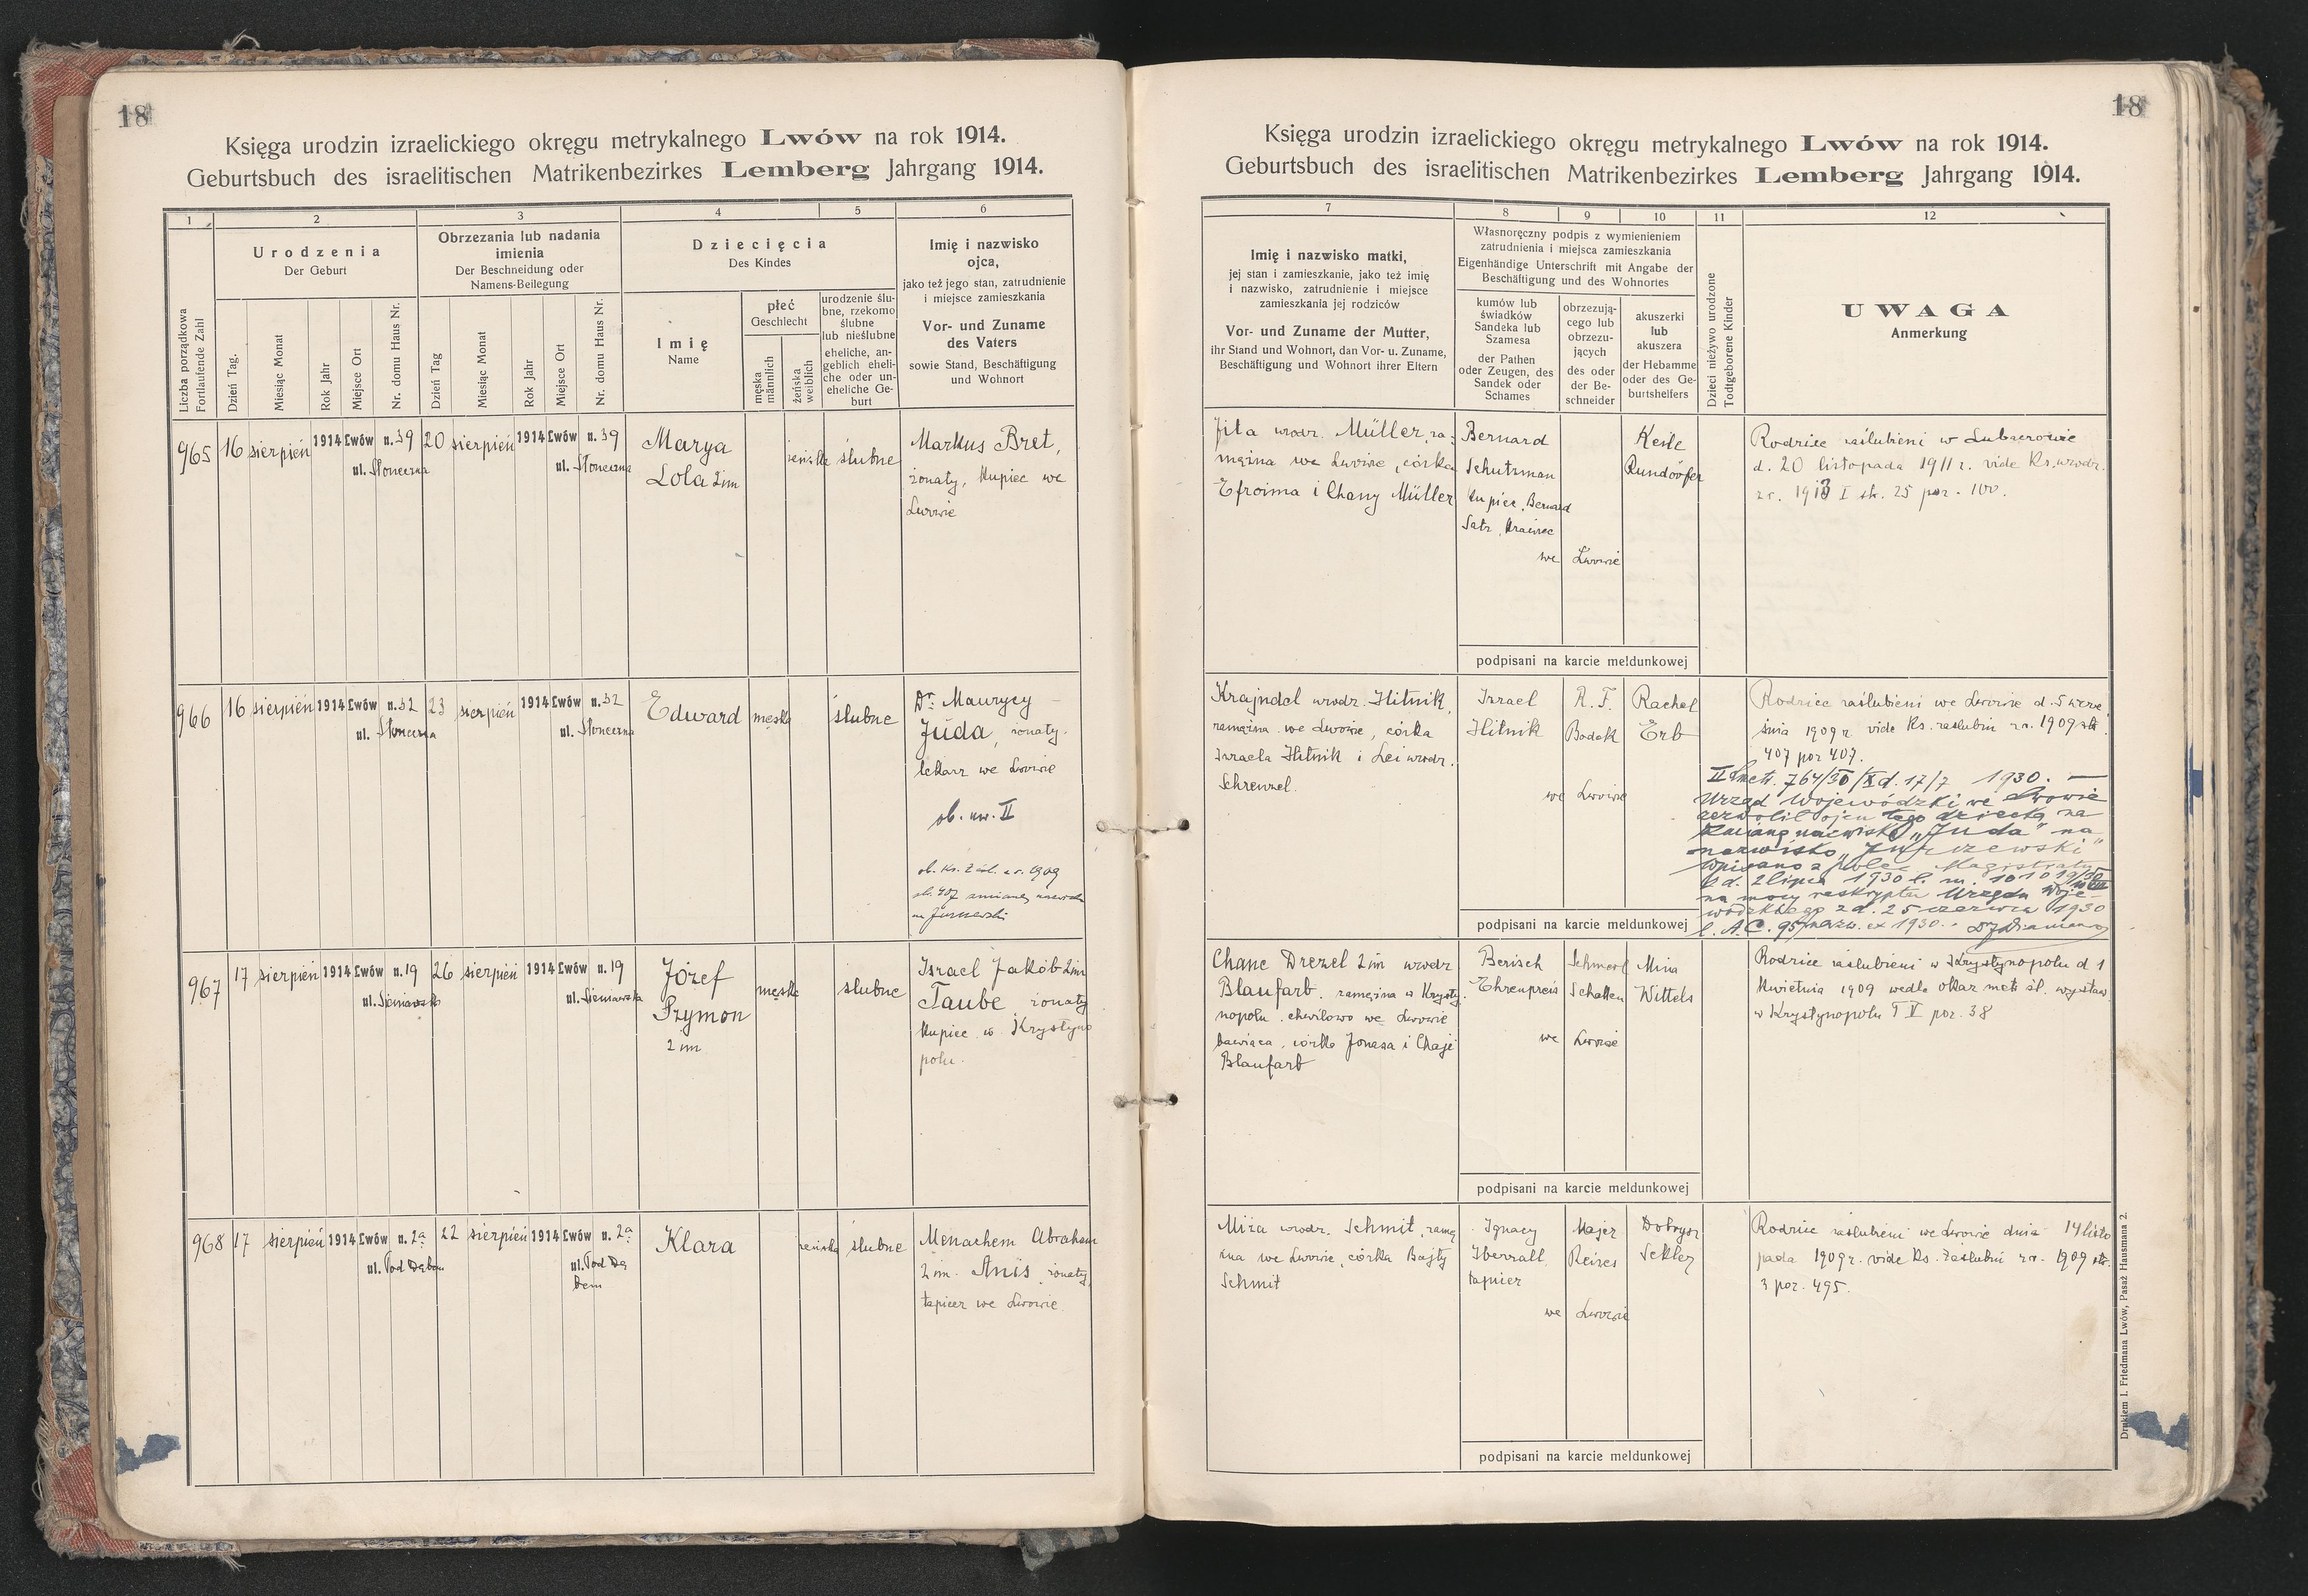 18
Księga urodzin izraelickiego okręgu metrykalnego Lwów na rok 1914.
Geburtsbuch des israelitischen Matrikenbezirkes Lemberg Jahrgang 1914.
1 2 3 4 5 6
Liczba porządkowa
Fortlaufende Zahl
Urodzenia
Der Geburt
Dzień Tag.
Miesiąc Monat
Rok Jahr
Miejsce Ort
Nr. domu Haus Nr.
Obrzezania lub nadania
imienia
Der Beschneidung oder
Namens-Beilegung
Dzień Tag
Miesiąc Monat
Rok Jahr
Miejsce Ort
Nr. domu Haus Nr.
Dziecięcia
Des Kindes
Imię
Name
płeć
Geschlecht
męska
männlich
żeńska
weiblich
urodzenie ślu-
bne, rzekomo
ślubne
lub nieślubne
eheliche, an-
geblich eheli-
che oder un-
eheliche Ge-
burt
Imię i nazwisko
ojca,
jako też jego stan, zatrudnienie
i miejsce zamieszkania
Vor- und Zuname
des Vaters
sowie Stand, Beschäftigung
und Wohnort
965 16 sierpień 1914 Lwów n. 39 20 sierpień 1914 Lwów n. 39 Marya żeńska ślubne Markus Bret,
ul. Słoneczna ul. Słoneczna Lola 2im żonaty, kupiec we
Lwowie
966 16 sierpień 1914 Lwów n. 32 23 sierpień 1914 Lwów n. 32 Edward męska ślubne Dr. Maurycy
ul. Słoneczna ul. Słoneczna Juda, żonaty,
lekarz we Lwowie
ob. uw. II
ob. Ks. zaśl. z r. 1909
str. 407 zmianę nazwiska
967 17 sierpień 1914 Lwów n. 19 26 sierpień 1914 Lwów n. 19 Józef męska ślubne Israel Jakób 2im
ul. Sieniawska ul. Sieniawska Szymon Taube, żonaty
2 im kupiec w Krystyno
polu.
968 17 sierpień 1914 Lwów n. 2a 22 sierpień 1914 Lwów n. 2a Klara żeńska ślubne Menachem Abraham
ul. Pod Dębem ul. Pod Dę 2 im. Anis, żonaty,
bem tapicer we Lwowie
18
Księga urodzin izraelickiego okręgu metrykalnego Lwów na rok 1914.
Geburtsbuch des israelitischen Matrikenbezirkes Lemberg Jahrgang 1914.
7 8 9 10 11 12
Imię i nazwisko matki,
jej stan i zamieszkanie, jako też imię
i nazwisko, zatrudnienie i miejsce
zamieszkania jej rodziców
Vor- und Zuname der Mutter,
ihr Stand und Wohnort, dan Vor- u. Zuname,
Beschäftigung und Wohnort ihrer Eltern
Własnoręczny podpis z wymienieniem
zatrudnienia i miejsca zamieszkania
Eigenhändige Unterschrift mit Angabe der
Beschäftigung und des Wohnortes
kumów lub
świadków
Sandeka lub
Szamesa
der Pathen
oder Zeugen, des
Sandek oder
Schames
obrzezują-
cego lub
obrzezu-
jących
des oder
der Be-
schneider
akuszerki
lub
akuszera
der Hebamme
oder des Ge-
burtshelfers
Dzieci nieżywo urodzone
Todtgeborene Kinder
UWAGA
Anmerkung
Jita urodz. Müller, za-
mężna we Lwowie, córka
Efroima i Chany Müller
Bernard
Schutzman
kupiec, Bernard
Satz, krawiec
we Lwowie
Keile
Rundörfer
Rodzice zaślubieni w Lubaczowie
d. 20 listopada 1911 r. vide Ks. urodz.
z r. 1913 I str. 25 poz. 100.
podpisani na karcie meldunkowej
Krajndel urodz. Hitnik,
zamężna we Lwowie, córka
Israela Hitnik i Lei urodz.
Schrenzel.
Israel
Hitnik
R. F.
Bodek
we Lwowie
Rachel
Erb
Rodzice zaślubieni we Lwowie d. 5 wrze
śnia 1909 r. vide Ks. zaślubin z r. 1909 str.
407 poz 407.
II L. metr. 764/30/X d. 17/7 1930.
Urząd Wojewódzki we Lwowie
zezwolił ojcu tego dziecka na
zmianę nazwiska „Juda" na
nazwisko „Jurczewski"
Wpisano z polec. Magistratu
z d. 2 lipca 1930 l. m. 101019/30
na mocy reskryptu Urzędu Woje-
wódzkiego z d. 25 czerwca 1930
podpisani na karcie meldunkowej
Chane Drezel 2 im urodz
Blaufarb, zamężna w Krysty
nopolu, chwilowo we Lwowie
bawiąca, córka Jonasa i Chaje
Blaufarb
Berisch
Ehrenpreis
Schmerl
Schatten
we Lwowie
Mina
Wittels
Rodzice zaślubieni w Krystynopolu d 1
kwietnia 1909 wedle okaz metr śl. wystaw
w Krystynopolu T V poz. 38
podpisani na karcie meldunkowej
Miza urodz. Schmit, zamę
żna we Lwowie, córka Bajty
Schmit
Ignacy
Iberall
tapicer
Majer
Reises
we Lwowie
Dobrysz
Sekler
Rodzice zaślubieni we Lwowie dnia 14 listo
pada 1909 r. vide Ks. zaślubin z r. 1909 str.
3 poz. 495.
podpisani na karcie meldunkowej
Drukiem I. Friedmana Lwów, Pasaż Hausmana 2.